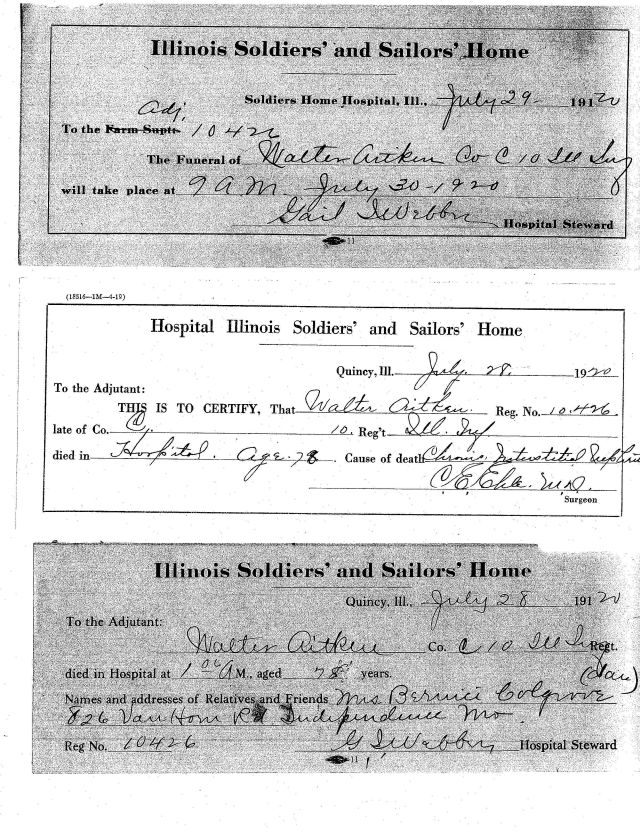 Illinois Soldiers' and Sailors' Home
Soldiers Home Hospital, Ill., July 29 - 1920
Adj.
To the Farm Supt. 10426
The Funeral of Walter Aitken Co C 10 Ill Inf
will take place at 9 A M. July 30-1920
Hospital Steward
11
(18516—1M—4-19)
Hospital Illinois Soldiers' and Sailors' Home
Quincy, Ill. July. 28. 1920
To the Adjutant:
THIS IS TO CERTIFY, That Walter Aitken. Reg. No. 10.426.
late of Co. C. 10. Reg't Ill. Inf
died in Hospital. Age. 78 Cause of death Chronic. Interstitial Nephritis
M.D.
Surgeon
Illinois Soldiers' and Sailors' Home
Quincy, Ill., July 28 1920
To the Adjutant:
Walter Aitken Co. C 10 Ill Inf Regt.
died in Hospital at 1 00 A M., aged 78 years.
(Dau)
Names and addresses of Relatives and Friends Mrs Bernice Colgrove
826 Van Horn Rd Independence Mo.
Reg No. 10426 Hospital Steward
11